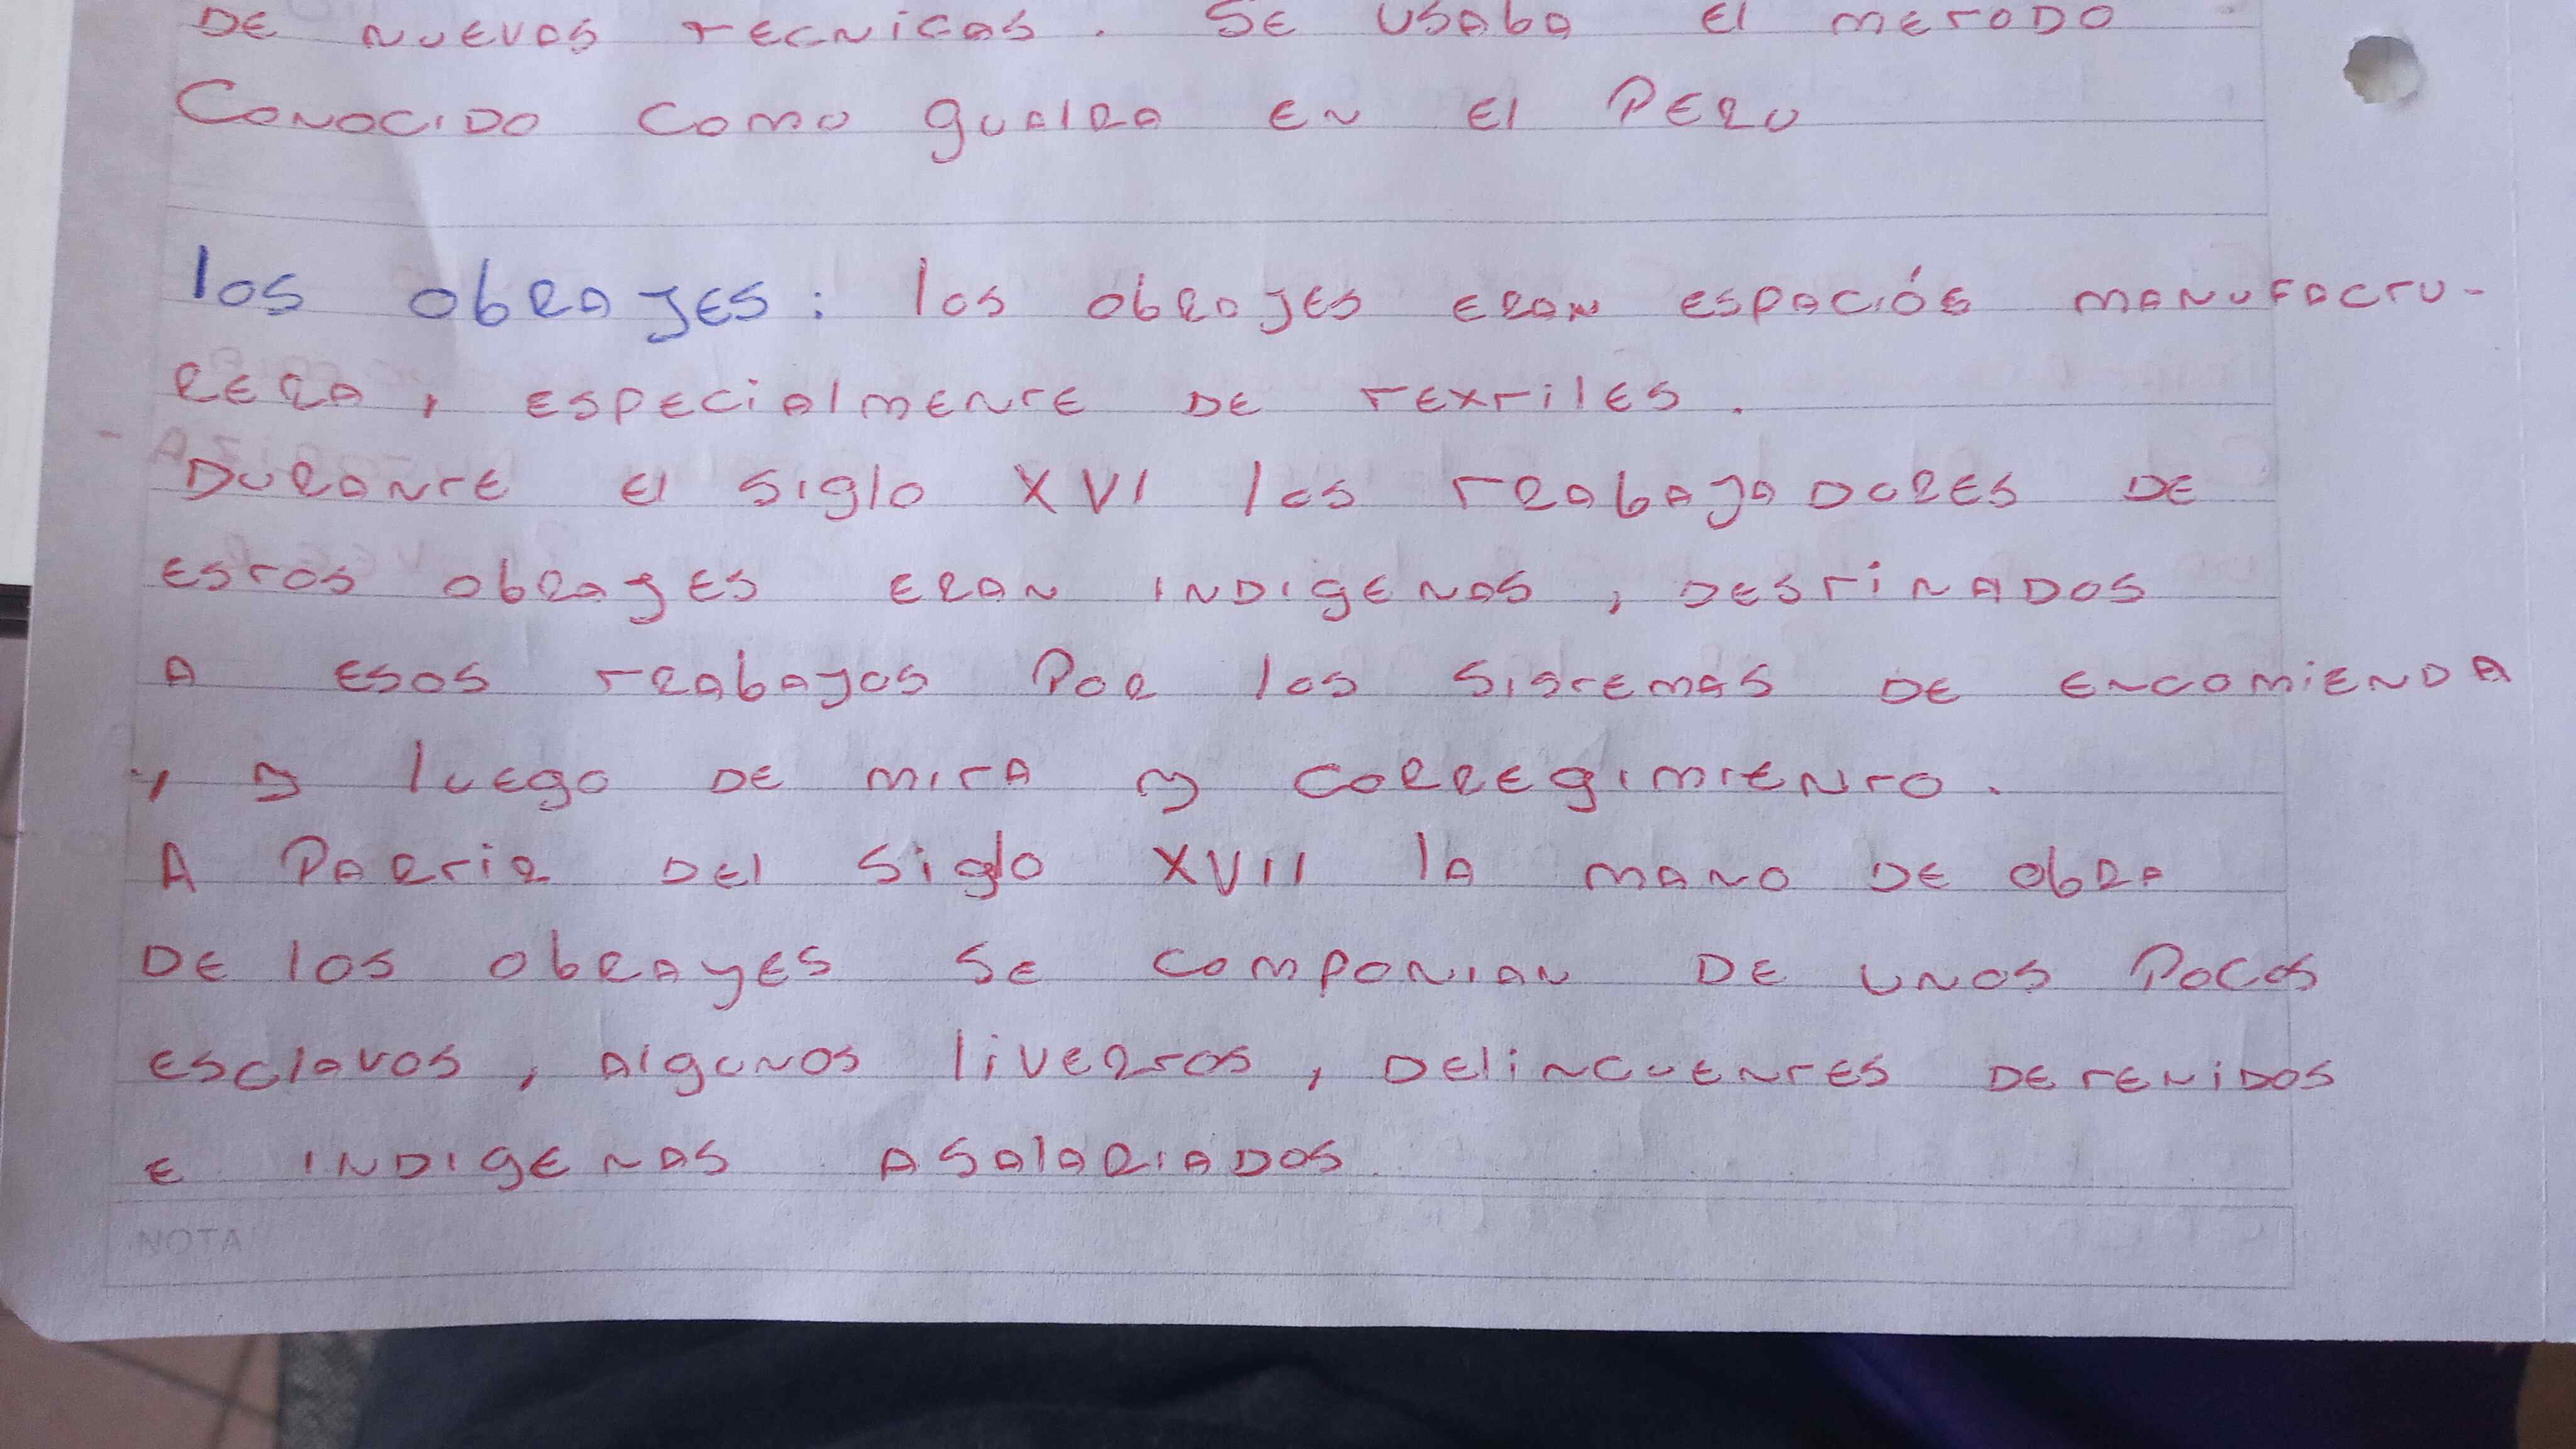 DE NUEVAS TECNICAS. SE USABA El METODO
CONOCIDO COMO guaira EN El PERU
los obrajes: los obrajes eran espaciós manufactu-
rera, especialmente de textiles.
Durante el siglo XVI los trabajadores de
estos obrajes eran indigenas, destinados
A esos trabajos por los sistemas de encomienda
, y luego de mita y corregimiento.
A partir del siglo XVII la mano de obra
De los obrayes se componian de unos pocos
esclavos, algunos livertos, delincuentes detenidos
e indigenas asalariados
NOTA